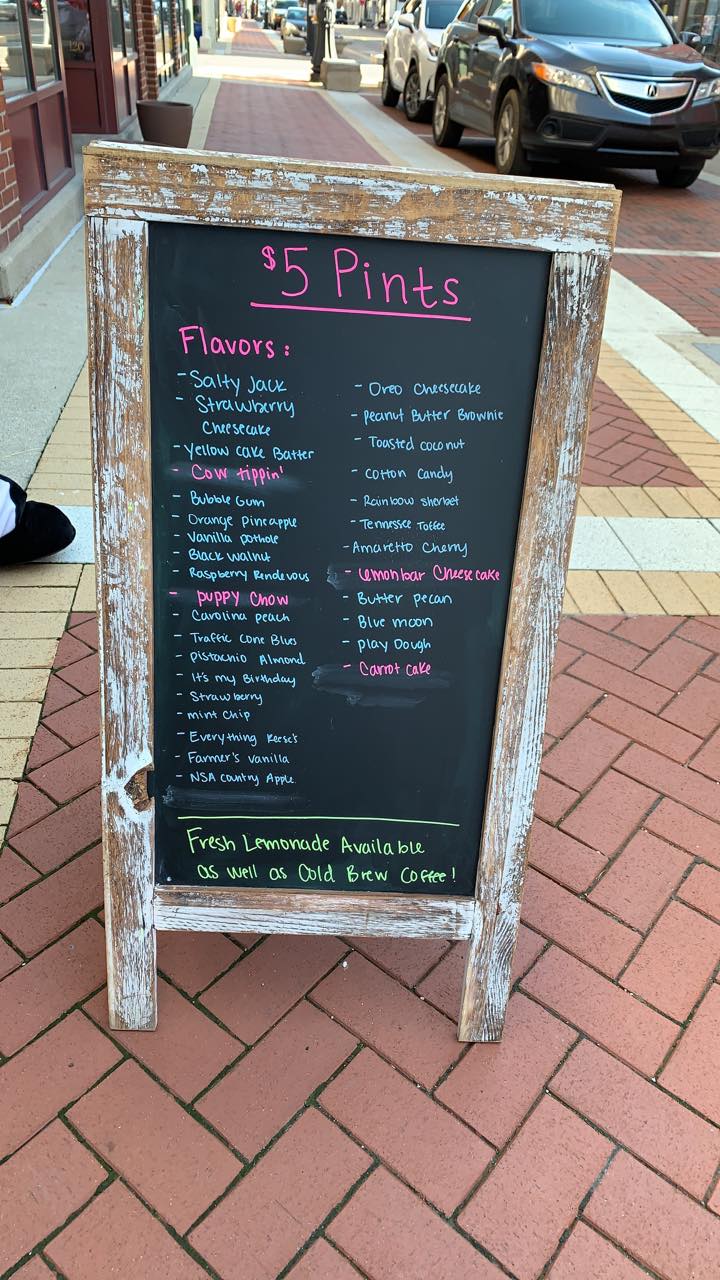 $5 Pints
Flavors:
- Salty Jack
- Strawberry
Cheesecake
- Yellow cake Batter
- Cow tippin'
- Bubble Gum
- Orange Pineapple
- Vanilla pothole
- Black walnut
- Raspberry Rendevous
- puppy Chow
- Carolina peach
- Traffic Cone Blues
- Pistachio Almond
- It's my Birthday
- Strawberry
- mint chip
- Everything Reese's
- Farmer's Vanilla
- NSA Country Apple.
- Oreo Cheesecake
- Peanut Butter Brownie
- Toasted coconut
- Cotton Candy
- Rainbow Sherbet
- Tennessee Toffee
- Amaretto Cherry
- Lemonbar Cheesecake
- Butter pecan
- Blue moon
- Play Dough
- Carrot cake
Fresh Lemonade Available
as well as Cold Brew Coffee!
120